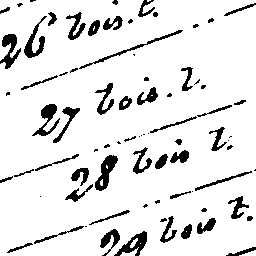 26 bois. t.
27 bois. t.
28 bois t.
29 bois t.